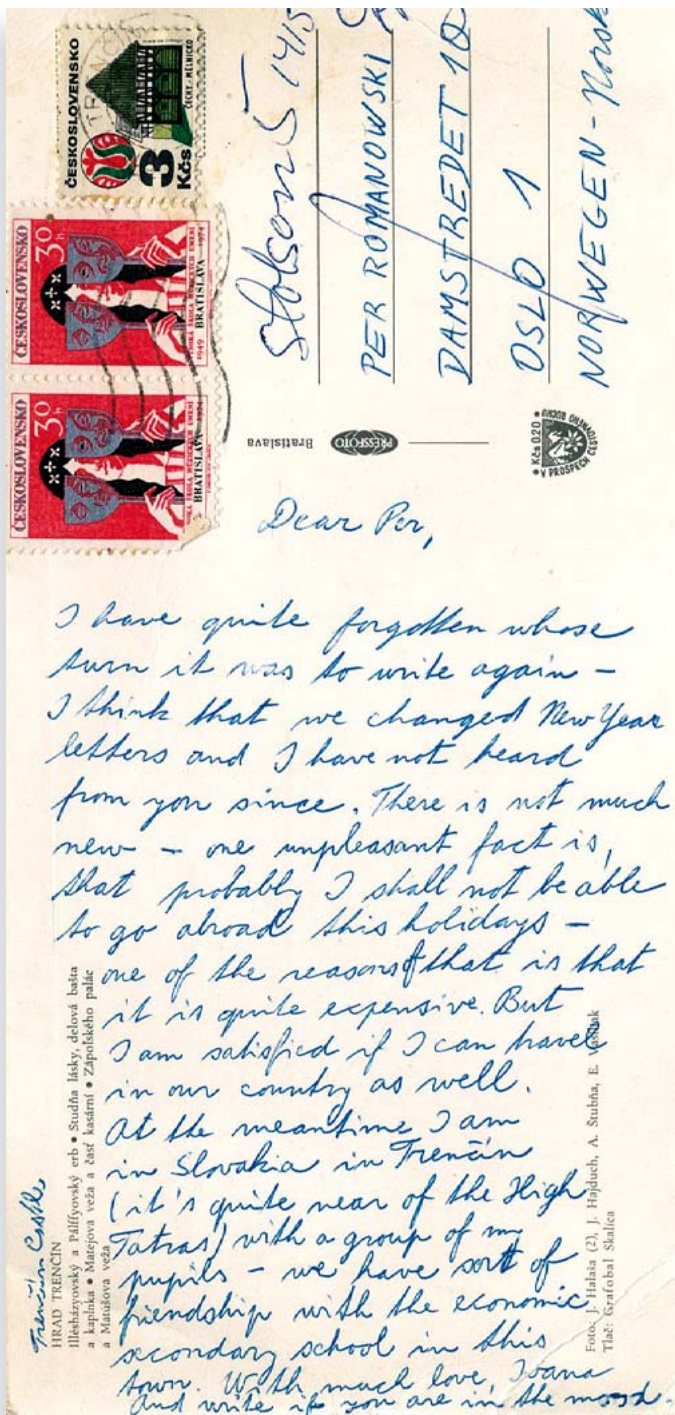 ČESKOSLOVENSKO
3 Kčs
ČECHY - MĚLNICKO
TRENČÍN
ČESKOSLOVENSKO
30 h
VYSOKÁ ŠKOLA MÚZICKÝCH UMENÍ
1949 BRATISLAVA 1974
ČESKOSLOVENSKO
30 h
ŠKOLA MÚZICKÝCH UMENÍ
BRATISLAVA 1974
PER ROMANOWSKI
DAMSTREDET 10
OSLO 1
NORWEGEN - Norsk
Bratislava PRESSFOTO
• Kčs 0,20 •
V PROSPECH CESTOVNÉHO RUCHU
Dear Per,
I have quite forgotten whose
turn it was to write again –
I think that we changed New Year
letters and I have not heard
from you since. There is not much
new – one unpleasant fact is,
that probably I shall not be able
to go abroad this holidays –
one of the reasons of that is that
it is quite expensive. But
I am satisfied if I can travel
in our country as well.
At the meantime I am
in Slovakia in Trenčín
(it's quite near of the High
Tatras) with a group of my
pupils – we have sort of
friendship with the economic
secondary school in this
town. With much love, Ivana
And write if you are in the mood.
Trenčín Castle
HRAD TRENČÍN
Illésházyovský a Pálffyovský erb • Studňa lásky, delová bašta
a kaplnka • Matejova veža a časť kasární • Zápoľského palác
a Matúšova veža
Foto: J. Halaša (2), J. Hajduch, A. Štubňa, E. Vasiliak
Tlač: Grafobal Skalica